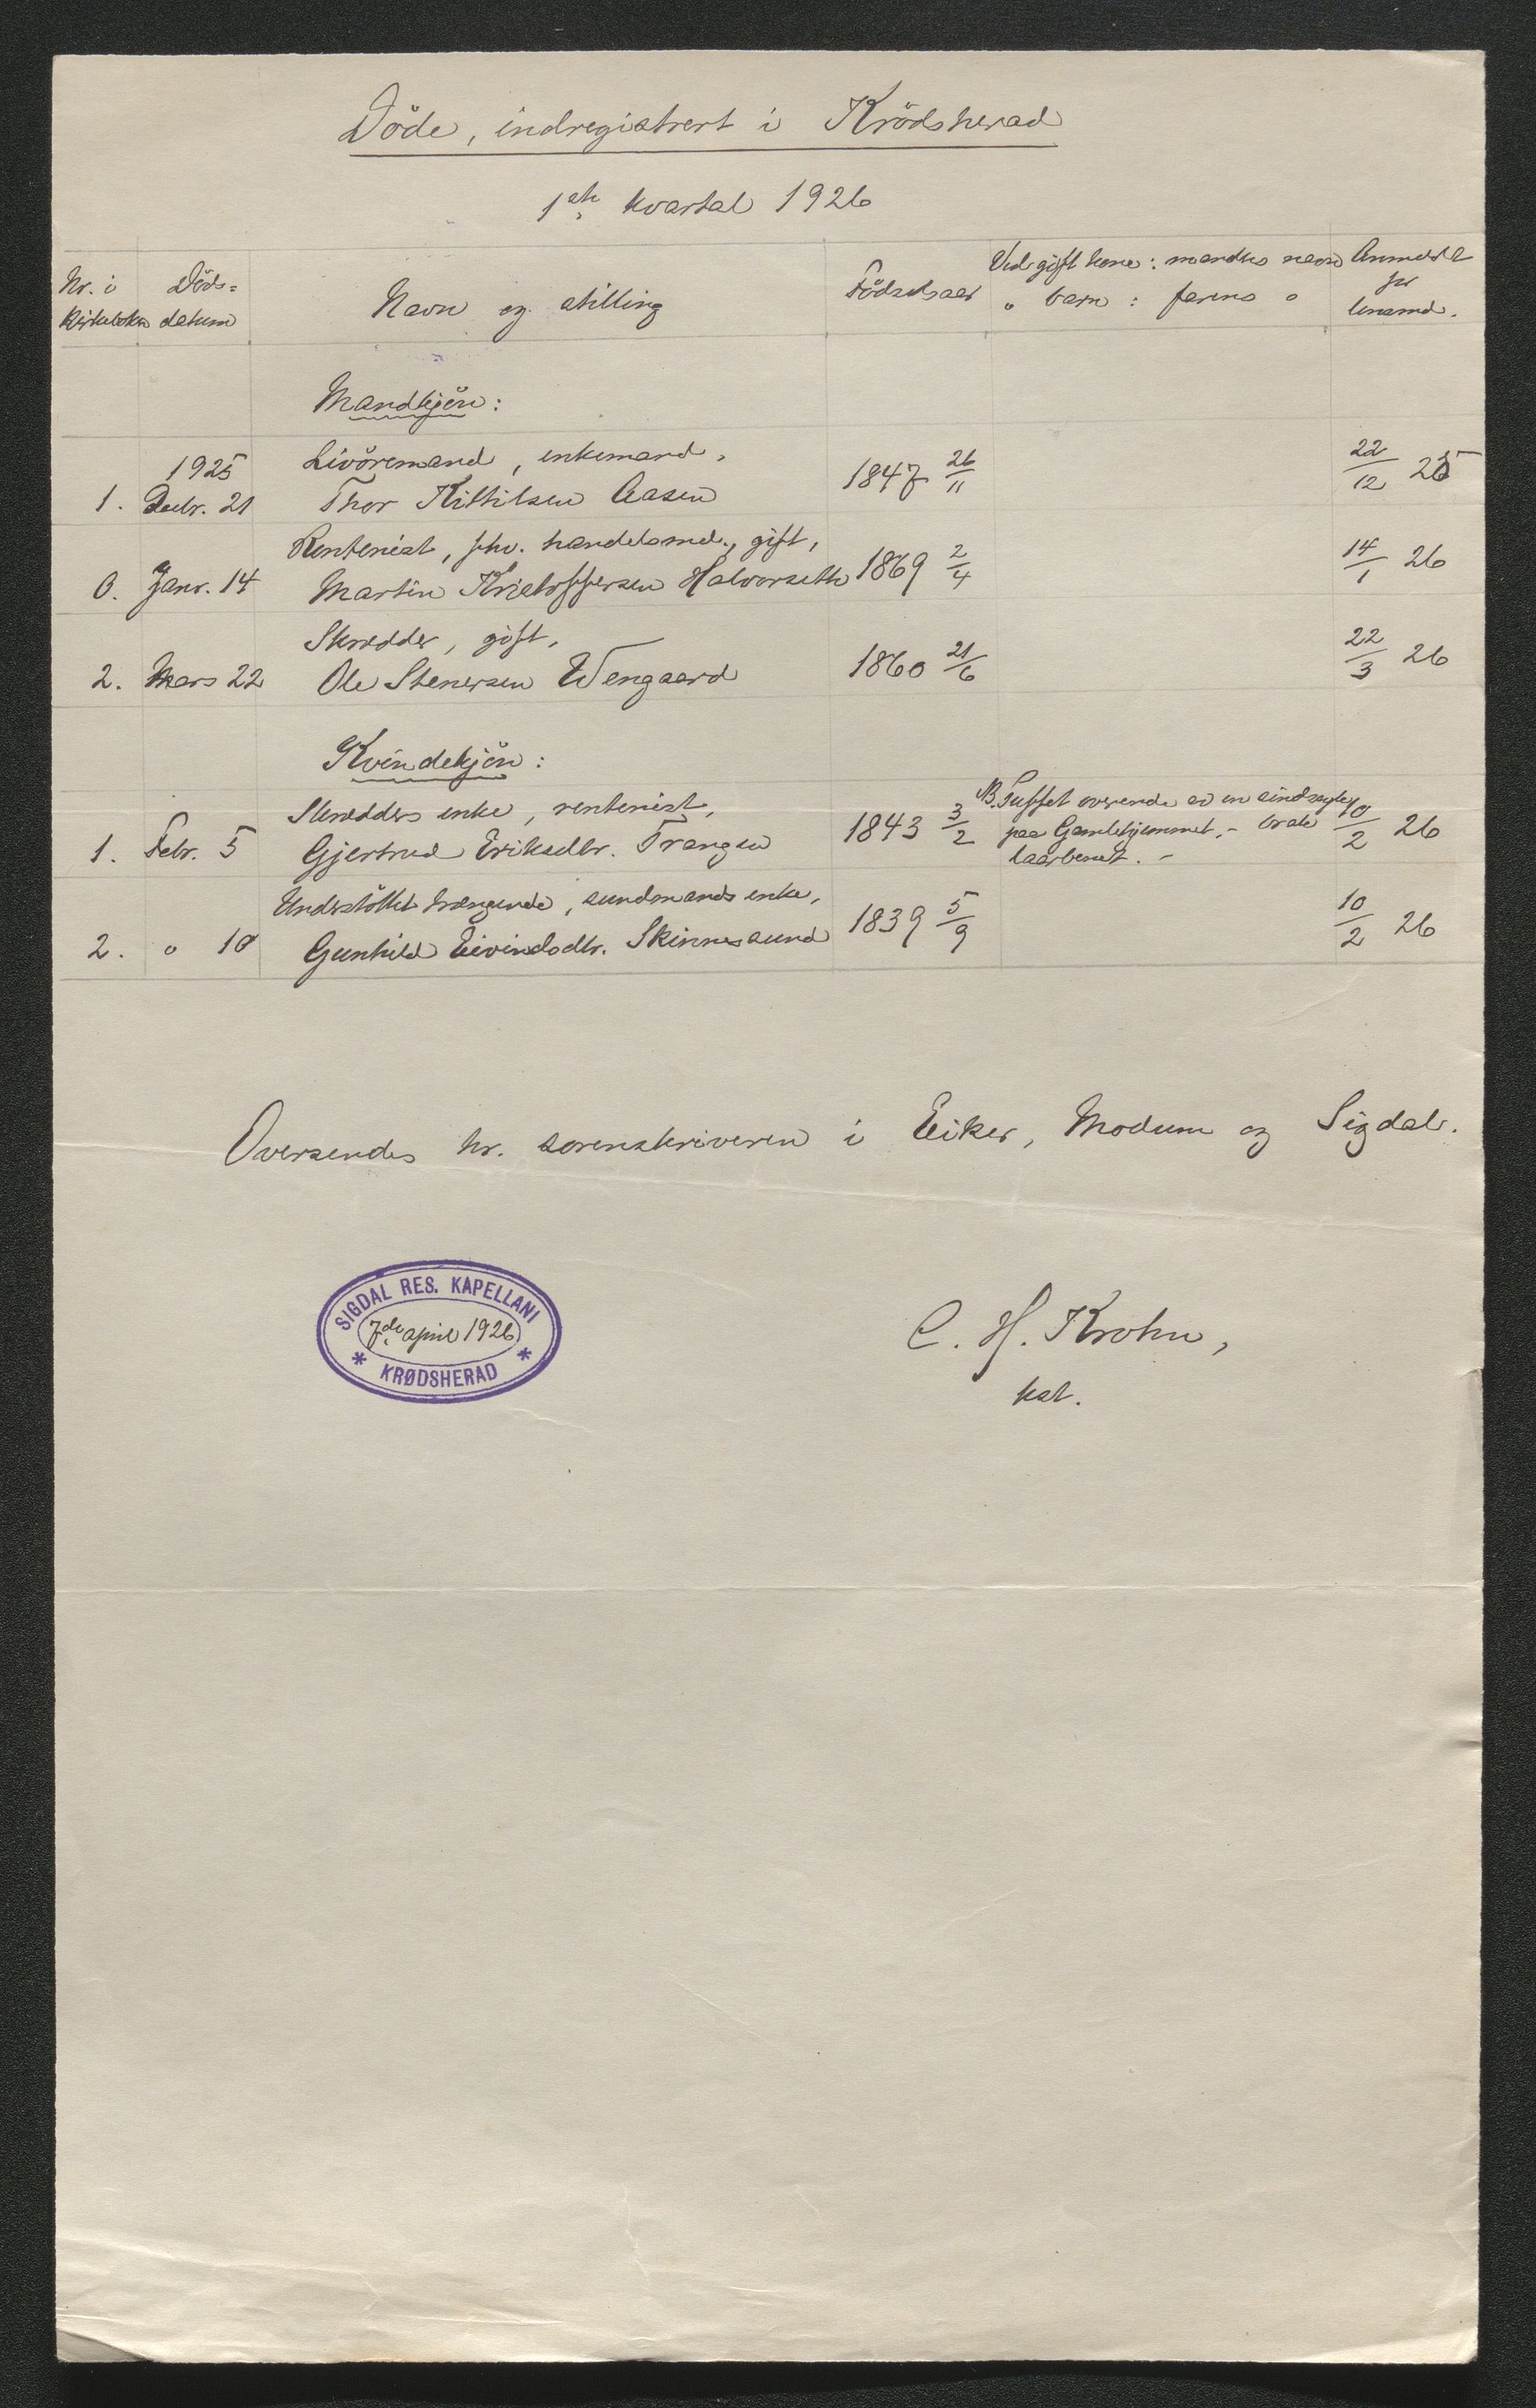 Döde, indregistrert i Krödsherad
1ste kvartal 1926
Nr. i kirkeboken
Döds= datum
Navn og stilling
Födselsaar
Ved gift kone: mandens navn
" barn : farens "
Anmeldt for lensmd.
Mandkjön:
1925 Livöremand, enkemand,
1. Decbr. 21 Thor Kittilsen Aasen 1847 26/11 22/12 25
Rentenist, fhv. handelsmd., gift,
0. Janr. 14 Martin Kristoffersen Halvorseth 1869 2/4 14/1 26
Skrædder, gift,
2. Mars 22 Ole Stenersen Wengaard 1860 21/6 22/3 26
Kvindekjön:
Skrædders enke, rentenist,
1. Febr. 5 Gjertrud Eriksdtr. Trangen 1843 3/2 NB. Puffet overende av en sindssyg paa Gamlehjemmet. - brak laarbenet. - 10/2 26
Understöttet trængende, sundmands enke,
2. " 10 Gunhild Eivindsdtr. Skinnessund 1839 5/9 10/2 26
Oversendes hr. sorenskriveren i Eiker, Modum og Sigdal.
SIGDAL RES. KAPELLANI
7de april 1926
* KRØDSHERAD *
C. H. Krohn,
kst.